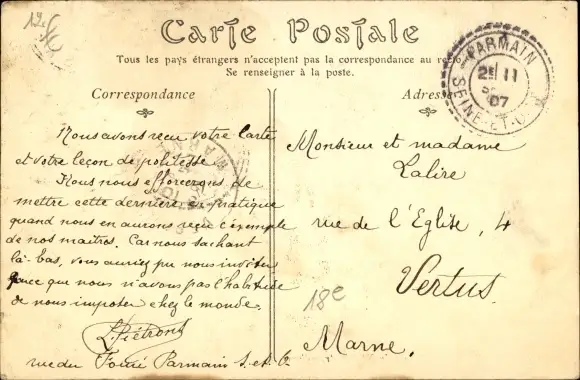 Carte Postale
Tous les pays étrangers n'acceptent pas la correspondance au
Se renseigner à la poste.
Correspondance
Adresse
PARMAIN
SEINE-ET-O
11
07
Nous avons reçu votre carte
et votre leçon de politesse
Nous nous efforcerons de
mettre cette dernière en pratique
quand nous en aurons reçu l'exemple
de nos maitres. Car nous sachant
là-bas, vous auriez pu nous inviter
parce que nous n'avons pas l'habitude
de nous imposer chez le monde.
L. Piétront
rue du Parmain S. et O
Monsieur et madame
Lalire
rue de l'Eglise, 4
Vertus
Marne.
18e